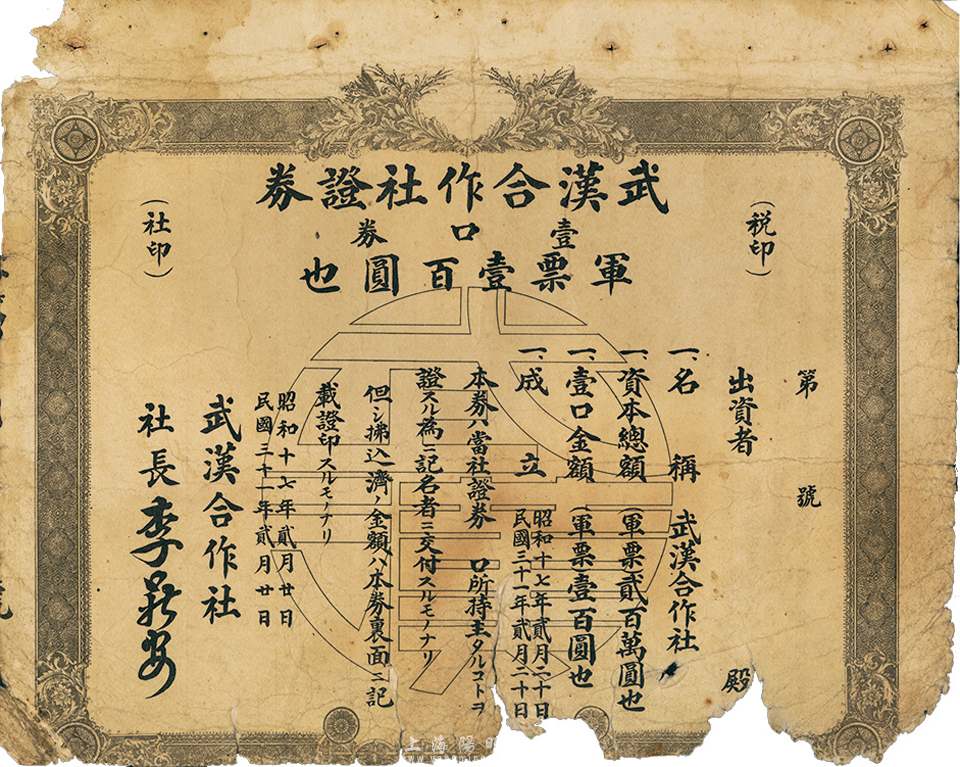 武漢合作社證券
壹口券
軍票壹百圓也
（税印）
（社印）
第　號
出資者　殿
一、名稱　武漢合作社
一、資本總額　（軍票貳百萬圓也
一、壹口金額　（軍票壹百圓也
一、成立　昭和十七年貳月二十日
民國三十一年貳月二十日
本券ハ當社證券　口所持主タルコトヲ
證スル為ニ記名者ニ交付スルモノナリ
但シ拂込濟ノ金額ハ本券裏面ニ記
載證印スルモノナリ
昭和十七年貳月廿日
民國三十一年貳月廿日
武漢合作社
社長 李
上海陽明